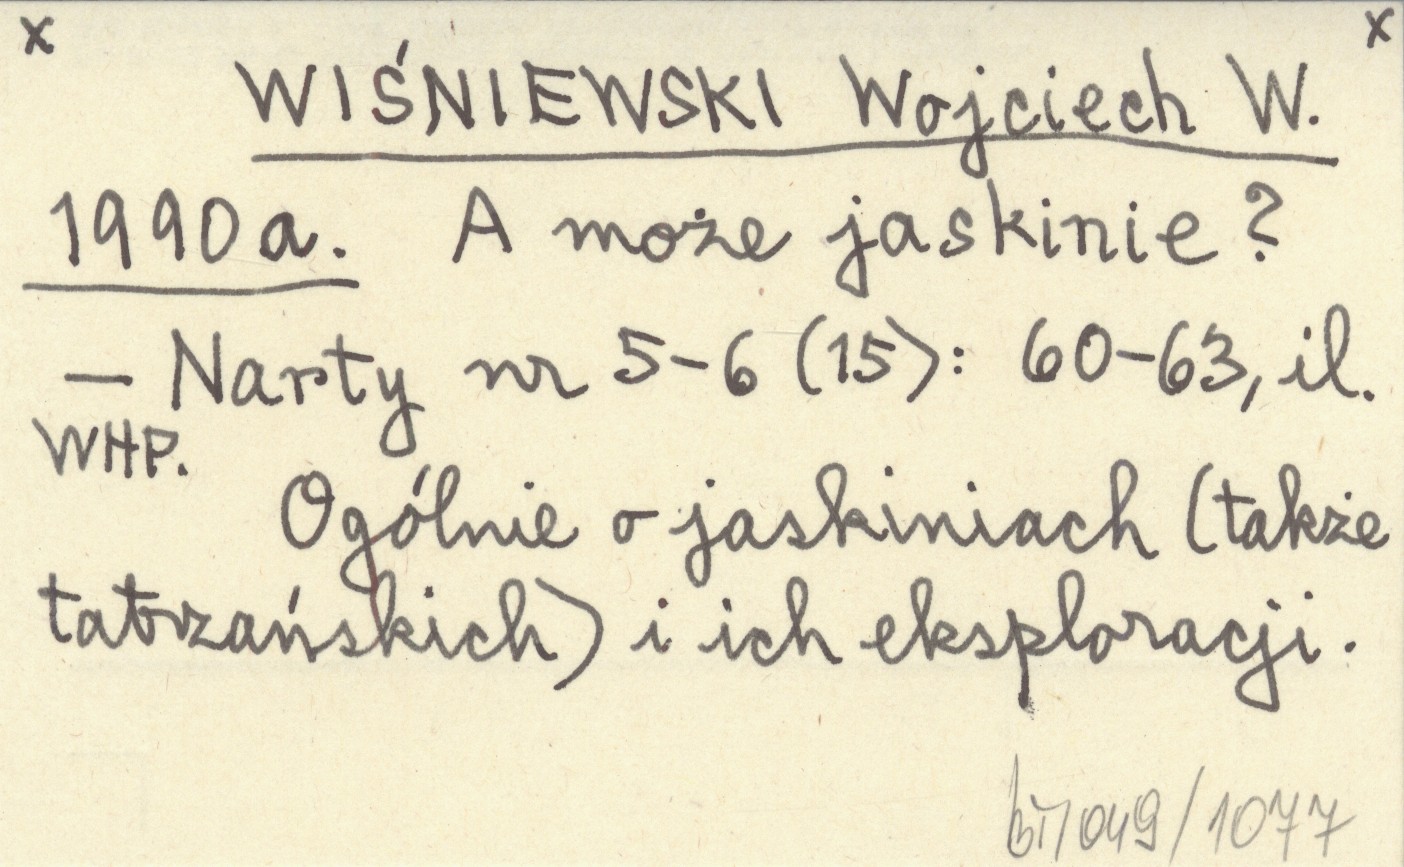 x x
WIŚNIEWSKI Wojciech W.
1990a. A może jaskinie?
— Narty nr 5-6 (15): 60-63, il.
WHP.
Ogólnie o jaskiniach (także
tatrzańskich) i ich eksploracji.
049/1077